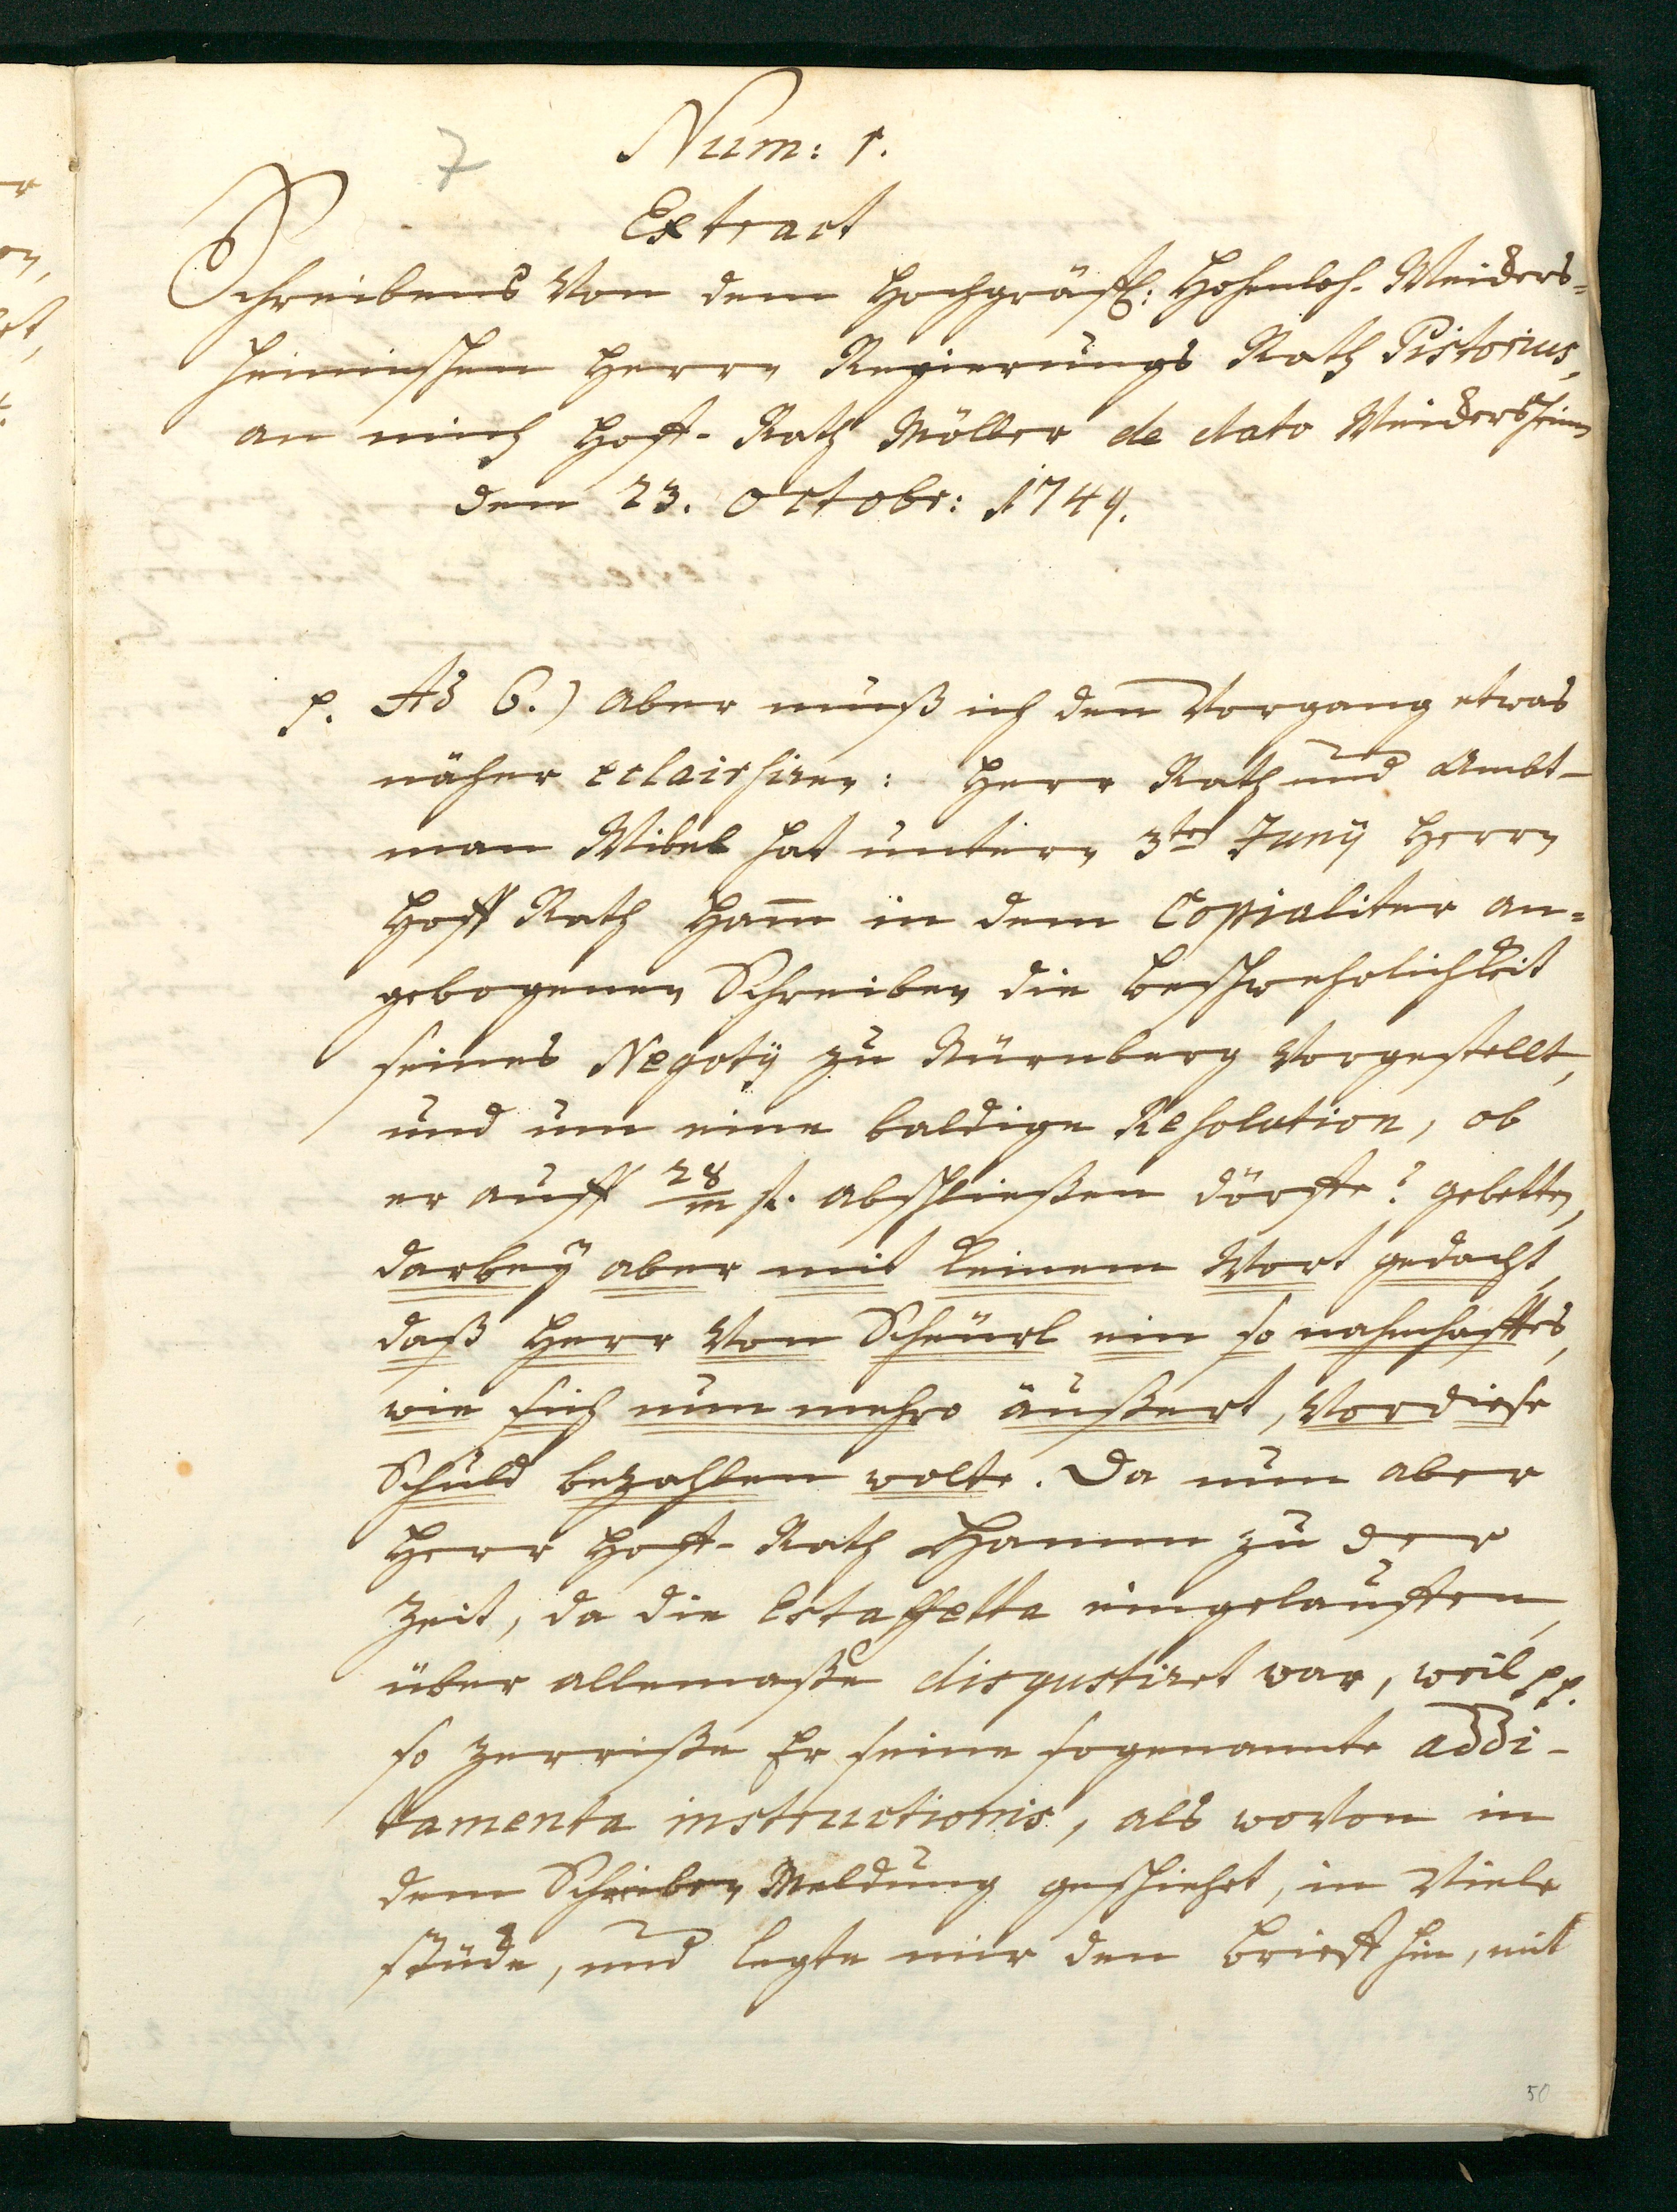 7
Num: 1.
Extract
Schreibens von dem Hochgräffl: Hohenloh. Weickers=
heimischen Herrn Regierungs Rath Pistorius,
an mich Hoff-Rath Möller de dato Weickersheim
den 23. Octobr: 1749.
p. Ad 6.) aber muß ich den Vorgang etwas
näher eclairsiren: Herr Rath und Ambt-
man Wibel hat untern 3ten Juny Herrn
Hoff Rath Ham̅ in dem Copialiter an=
gebogenen Schreiben die beschwehrlichkeit
seines Negotÿ zu Nürnberg vorgestellt,
und um eine baldige Resolution, ob
er auff 28/m f. abschließen dörffe? gebetten,
darbeÿ aber mit keinem Wort gedacht,
daß Herr von Scheürl ein so nahmhafftes,
wie sich nun mehro äußert, vor diese
Schuld bezahlen wolte. Da nun aber
Herr Hoff-Rath Hamm zu der
Zeit, da die Estaffetta eingelauffen,
über allemaße disgustiret war, weil pp.
so zerriße Er seine sogenannte addi-
tamenta instructionis, als wovon in
dem Schreiben Meldung geschiehet, in viele
stücke, und legte mir den brieff hin, mit
50